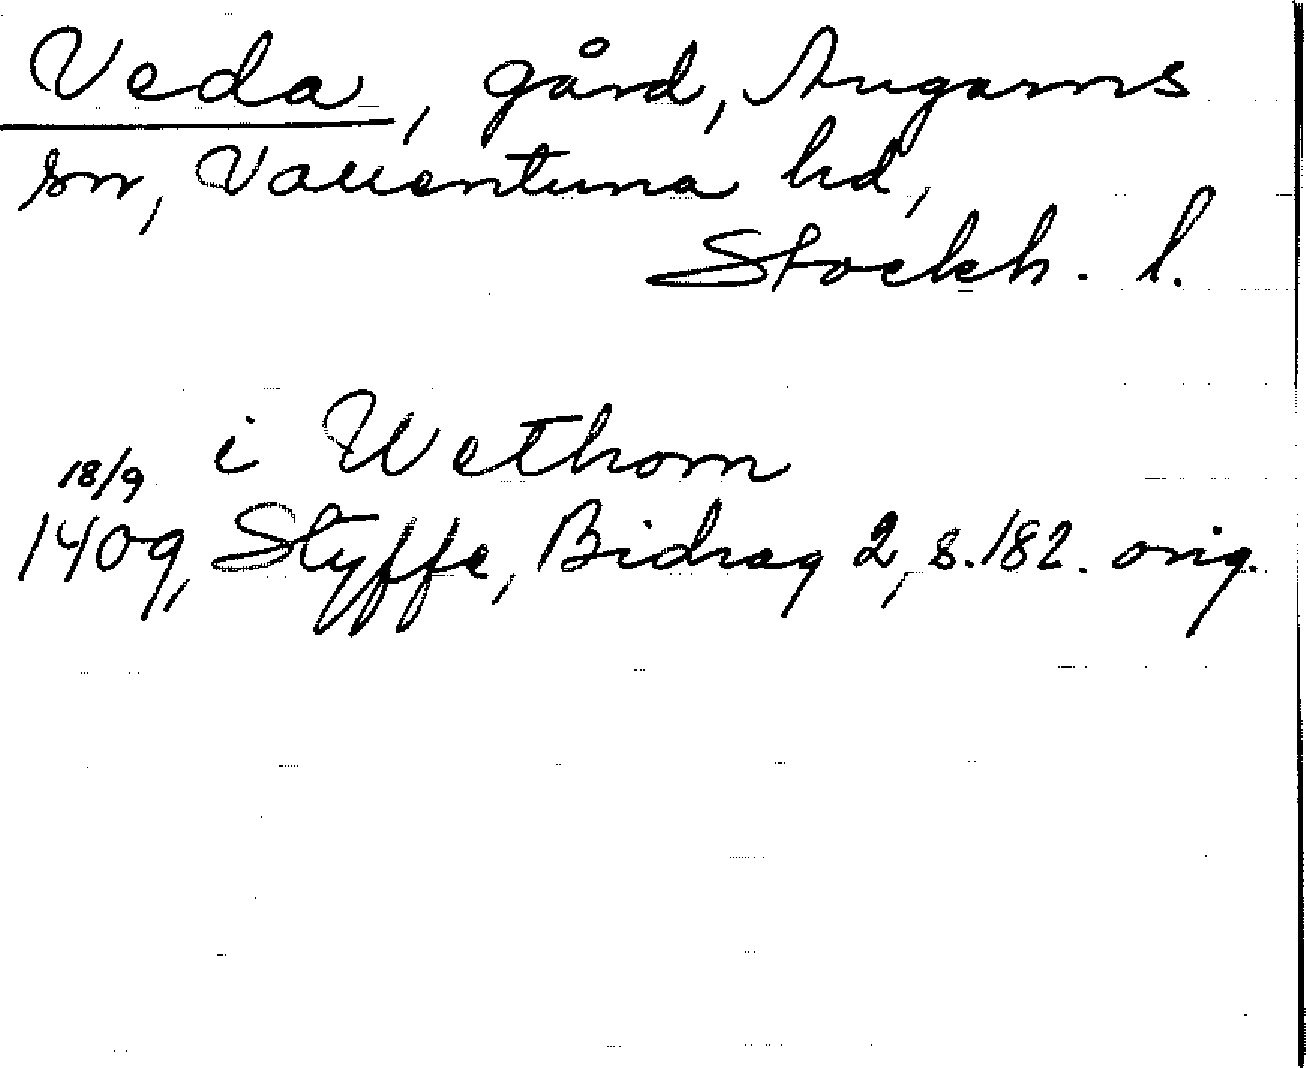 Veda, gård, Angarns
sn, Vallentuna hd,
Stockh. l.
i Wethom
18/9
1409, Styffe, Bidrag 2, s. 182. orig.